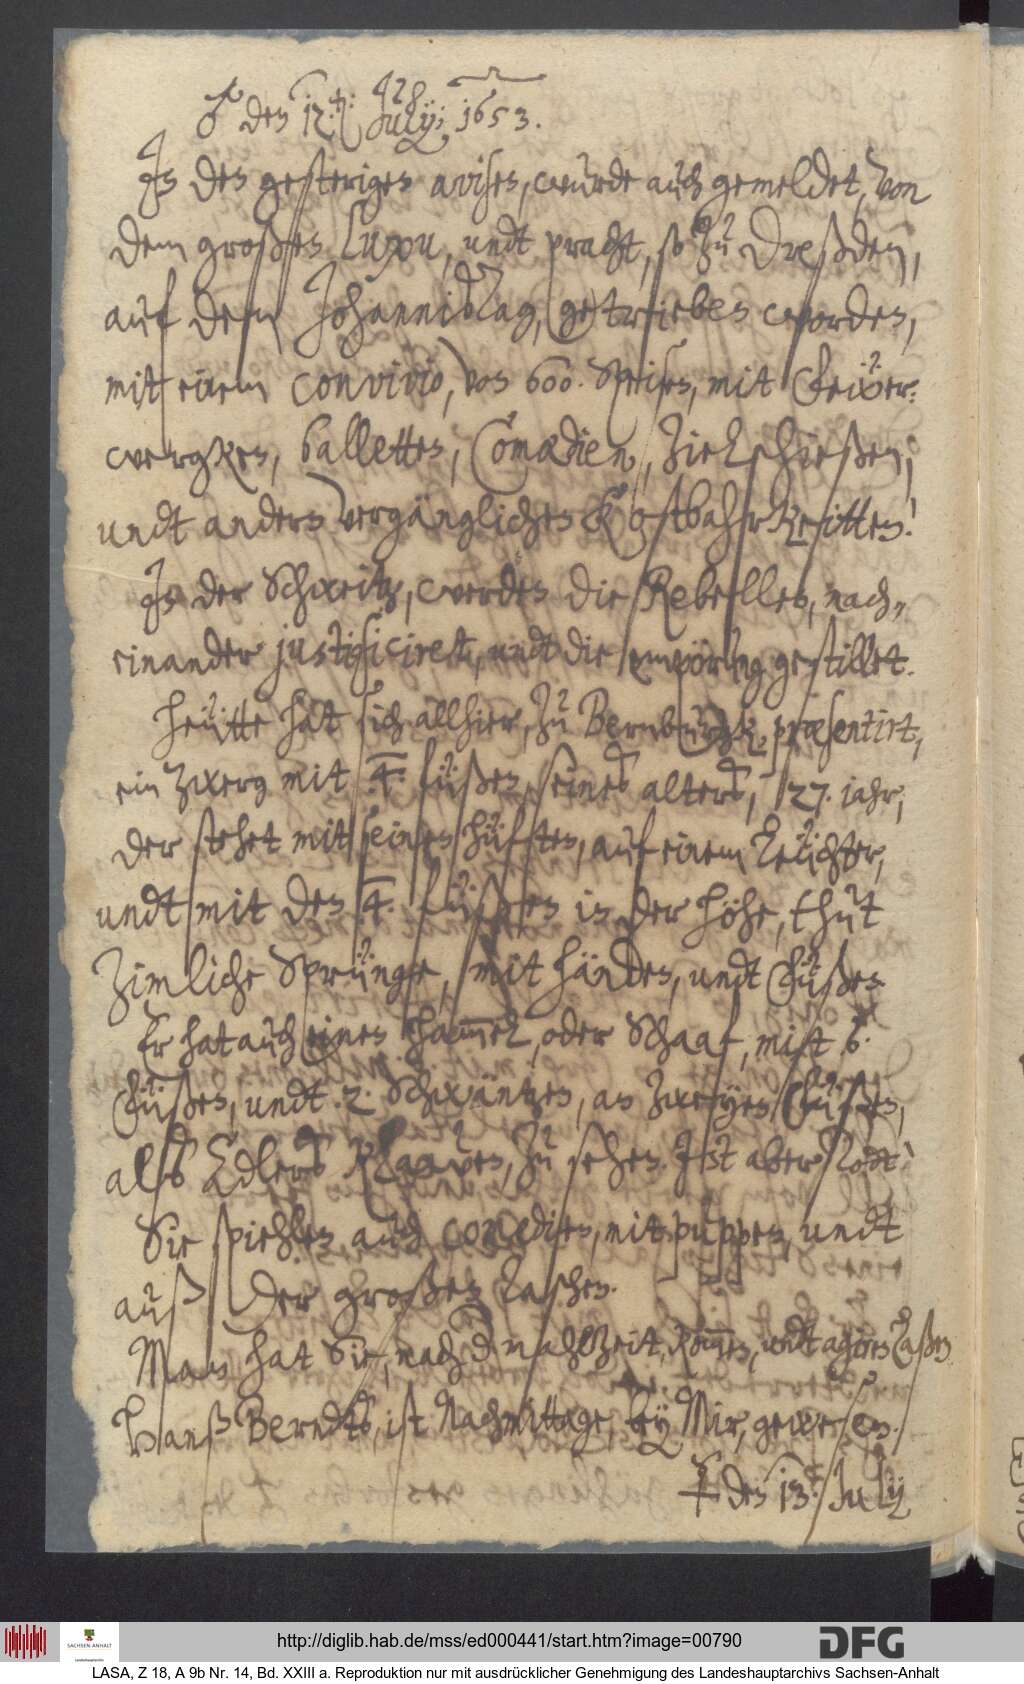 ♂ den 12.t: July; 1653.
In den gesterigen avisen, wurde auch gemeldet, von
dem großen luxu, undt pracht, so zu Dreßden,
auf dem Johannistag, getrieben worden,
mit einem convivio, von 600. Speisen, mit Feẅer-
wergken, balletten, Comœdien, Zielschießen,
undt andern vergänglichen Kostbahrkeitten!
In der Schweitz, werden die Rebellen, nach-
einander justificiret, undt die empörung gestillet.
Heütte hat sich allhier, zu Bernburgk, præsentirt,
ein Zwerg mit 4. füßen, seines alters, 27. jahr,
der stehet mit seinen hüften, auf einem Leüchter,
undt mit den 4. füßen in der höhe, thut
Zimliche Sprünge, mit händen, undt Füßen.
Er hat auch einen hammel, oder Schaaf, mitt 6.
Füßen, undt 2. Schwäntzen, an zweyen Füßen,
alß Adlers Klawen, zu sehen. Ist aber Todt!
Sie spiehlen auch comedien, mit puppen, undt
auß der großen Taschen.
Man hat Sie, nach d. mahlzeit, kommen, undt agiren laßen.
Hanß Berndts, ist Nachmittage, bey Mir, gewesen.
den 13. July
http://diglib.hab.de/mss/ed000441/start.htm?image=00790
SACHSEN-ANHALT
DFG
LASA, Z 18, A 9b Nr. 14, Bd. XXIII a. Reproduktion nur mit ausdrücklicher Genehmigung des Landeshauptarchivs Sachsen-Anhalt